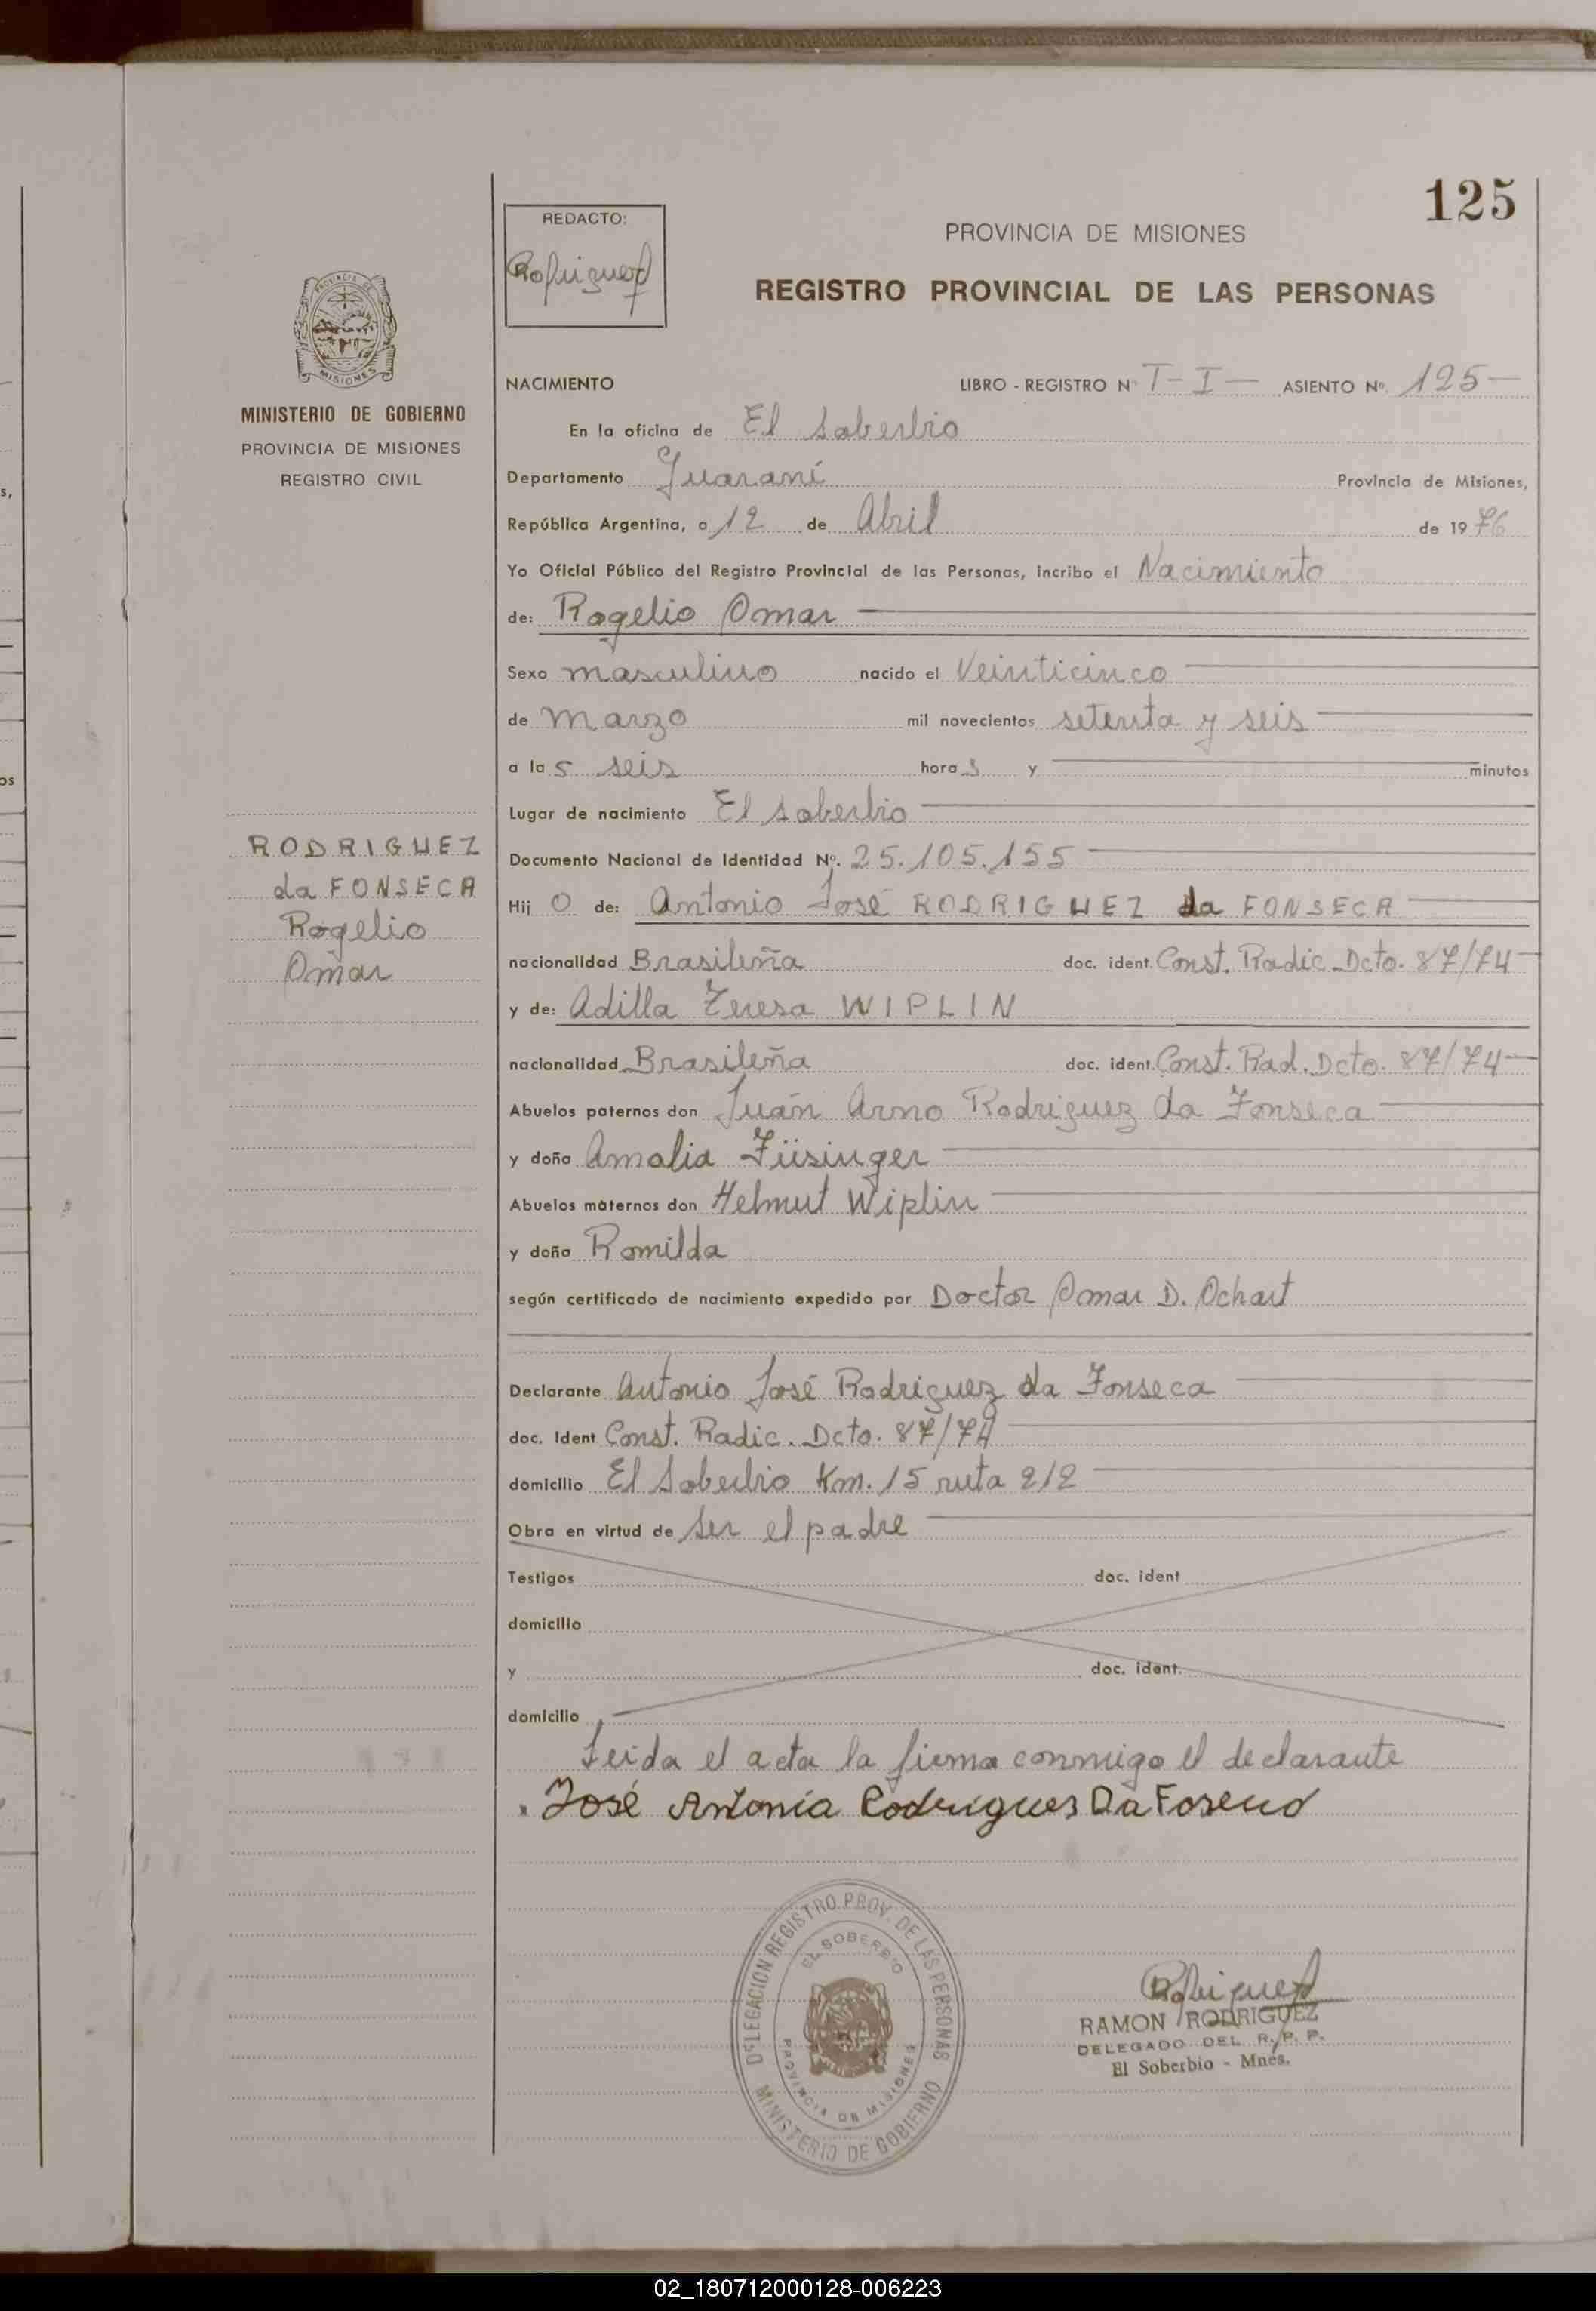 125
REDACTO:
Rodriguez
PROVINCIA DE MISIONES
REGISTRO PROVINCIAL DE LAS PERSONAS
PROVINCIA DE
MISIONES
MINISTERIO DE GOBIERNO
PROVINCIA DE MISIONES
REGISTRO CIVIL
NACIMIENTO LIBRO - REGISTRO Nº T-I- ASIENTO Nº. 125-
En la oficina de El Soberbio
Departamento Guaraní Provincia de Misiones,
República Argentina, a 12 de Abril de 1976
Yo Oficial Público del Registro Provincial de las Personas, incribo el Nacimiento
de: Rogelio Omar
Sexo masculino nacido el Veinticinco
de marzo mil novecientos setenta y seis
a las seis horas y minutos
Lugar de nacimiento El Soberbio
Documento Nacional de Identidad Nº. 25.105.155
Hijo de: Antonio José RODRIGUEZ da FONSECA
nacionalidad Brasileña doc. ident. Const. Radic. Dcto. 87/74
y de: Adilla Teresa WIPLIN
nacionalidad Brasileña doc. ident. Const. Rad. Dcto. 87/74
Abuelos paternos don Juán Arno Rodriguez da Fonseca
y doña Amalia Füsinger
Abuelos maternos don Helmut Wiplin
y doña Romilda
según certificado de nacimiento expedido por Doctor Omar D. Ochart
Declarante Antonio José Rodriguez da Fonseca
doc. Ident Const. Radic. Dcto. 87/74
domicilio El Soberbio Km. 15 ruta 212
Obra en virtud de ser el padre
Testigos doc. ident
domicilio
y doc. ident.
domicilio
Leida el acta la firma conmigo el declarante
José Antonia Rodrigues Da Foseco
RODRIGUEZ
da FONSECA
Rogelio
Omar
DELEGACION REGISTRO PROV. DE LAS PERSONAS
EL SOBERBIO
PROVINCIA DE MISIONES
MINISTERIO DE GOBIERNO
Rodriguez
RAMON RODRIGUEZ
DELEGADO DEL R. P. P.
El Soberbio - Mnes.
02_180712000128-006223